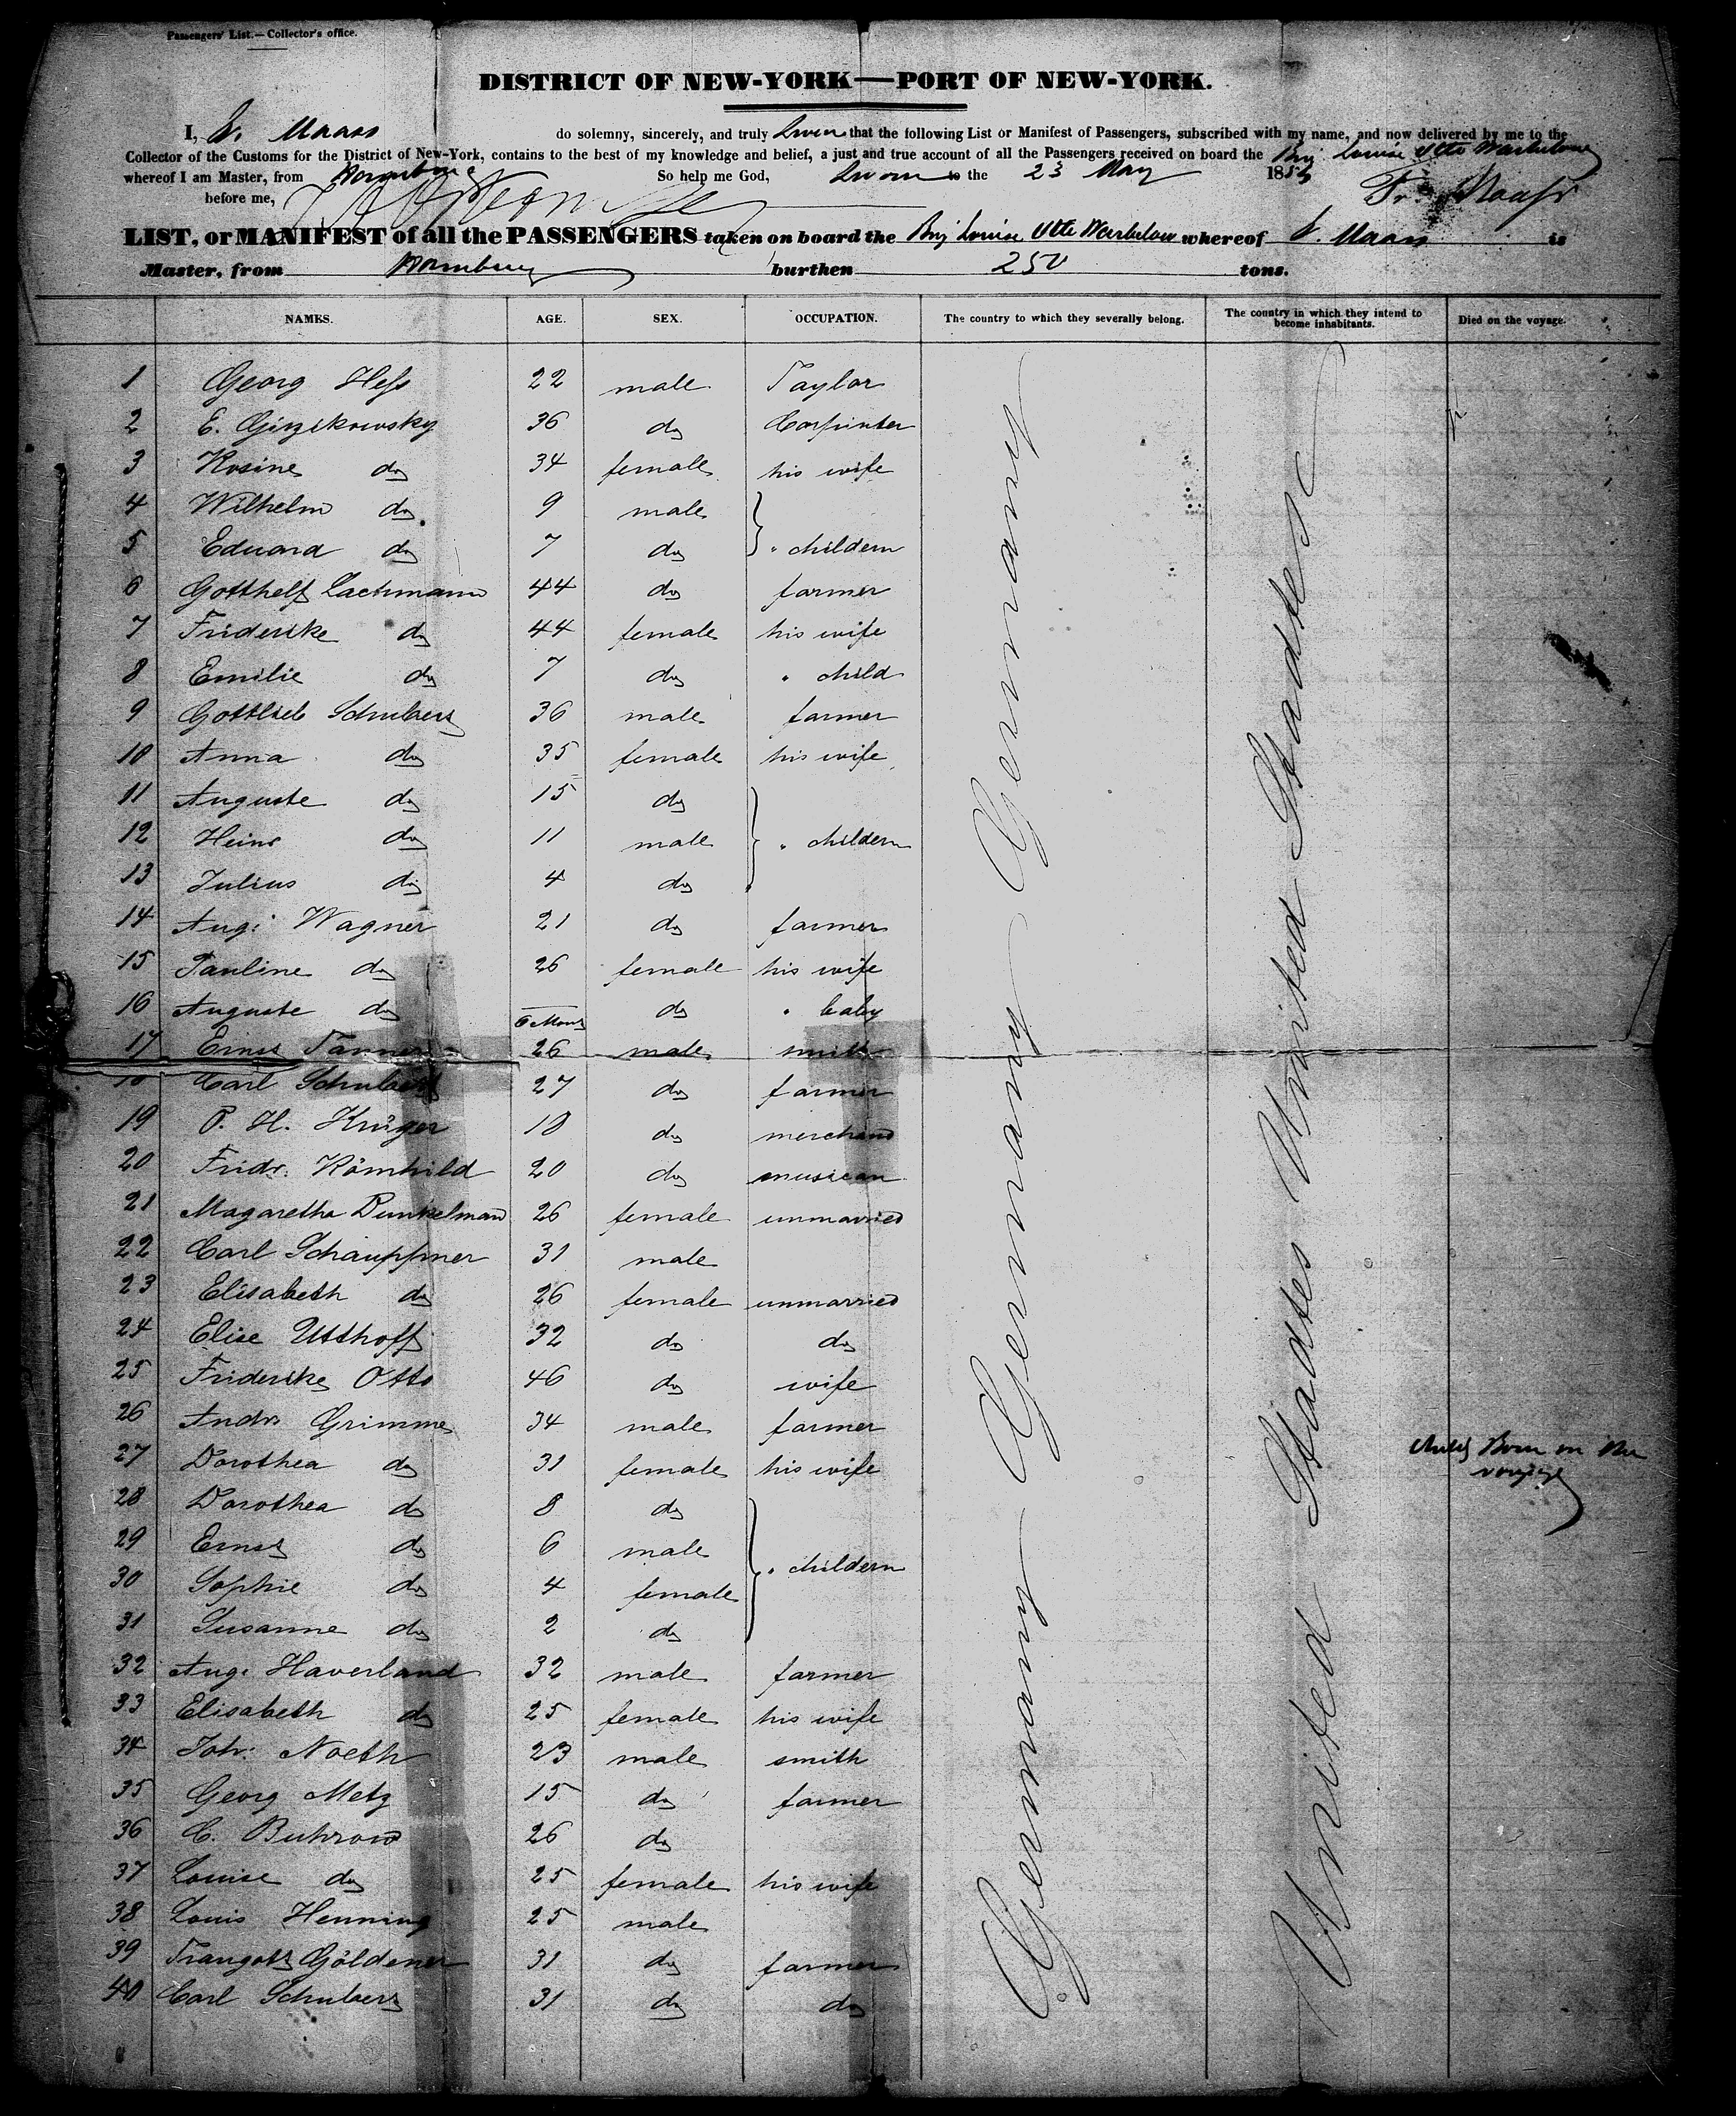 Passengers' List.—Collector's office.
DISTRICT OF NEW-YORK—PORT OF NEW-YORK.
I, J. Maass do solemny, sincerely, and truly Swear that the following List or Manifest of Passengers, subscribed with my name, and now delivered by me to the
Collector of the Customs for the District of New-York, contains to the best of my knowledge and belief, a just and true account of all the Passengers received on board the Brig Louise Otto Warbelow
whereof I am Master, from Hamburg So help me God, Sworn to the 23 May 185
before me, Fr. Maass
LIST, or MANIFEST of all the PASSENGERS taken on board the Brig Louise Otto Warbelow whereof J. Maass is
Master, from Hamburg burthen 250 tons.
NAMES. AGE. SEX. OCCUPATION. The country to which they severally belong. The country in which they intend to become inhabitants. Died on the voyage.
1 Georg Hess 22 male Taylor
2 E. Ginzikowsky 36 do Carpinter
3 Rosine do 34 female his wife
4 Wilhelm do 9 male
5 Eduard do 7 do " childern
6 Gotthelf Lachmann 44 do farmer
7 Friderike do 44 female his wife
8 Emilie do 7 do " child
9 Gottlieb Schubert 36 male farmer
10 Anna do 35 female his wife
11 Auguste do 15 do
12 Heinr do 11 male " childern
13 Julius do 4 do
14 Aug: Wagner 21 do farmer
15 Pauline do 26 female his wife
16 Auguste do 6 Mons do " baby
17 Ernst Tanner 26 male smith
18 Carl Schubert 27 do farmer
19 P. H. Krüger 18 do merchand
20 Fridr. Römhild 20 do musican
21 Magaretha Dunkelmann 26 female unmarried
22 Carl Schauppmer 31 male
23 Elisabeth do 26 female unmarried
24 Elise Utthoff 32 do do
25 Friderike Otto 46 do wife
26 Andr Grimme 34 male farmer
27 Dorothea do 31 female his wife
28 Dorothea do 8 do
29 Ernst do 6 male
30 Sophie do 4 female " childern
31 Susanne do 2 do
32 Aug. Haverland 32 male farmer
33 Elisabeth do 25 female his wife
34 Joh: Noeth 23 male smith
35 Georg Metz 15 do farmer
36 C. Buhrow 26 do
37 Louise do 25 female his wife
38 Louis Henning 25 male
39 Traugott Göldener 31 do farmer
40 Carl Schubert 31 do do
Germany Germany Germany Germany
United Stadtes United Stadtes
Child Born on the
voyage